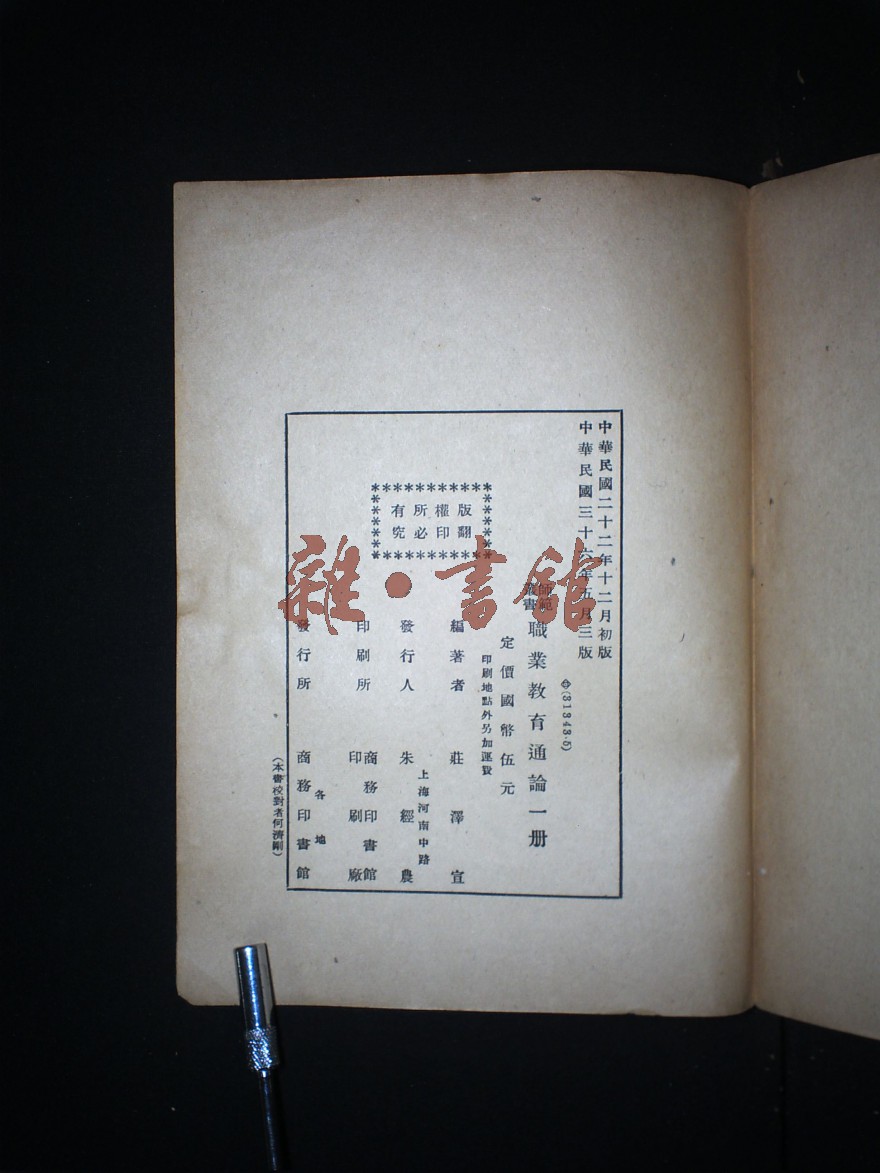 中華民國二十二年十二月初版
中華民國三十六年五月三版
(31343·5)
師範叢書 職業教育通論一册
定價國幣伍元
印刷地點外另加運費
版權所有
翻印必究
編著者 莊澤宣
上海河南中路
發行人 朱經農
印刷所 商務印書館印刷廠
各地
發行所 商務印書館
(本書校對者何濟剛)
雜·書館